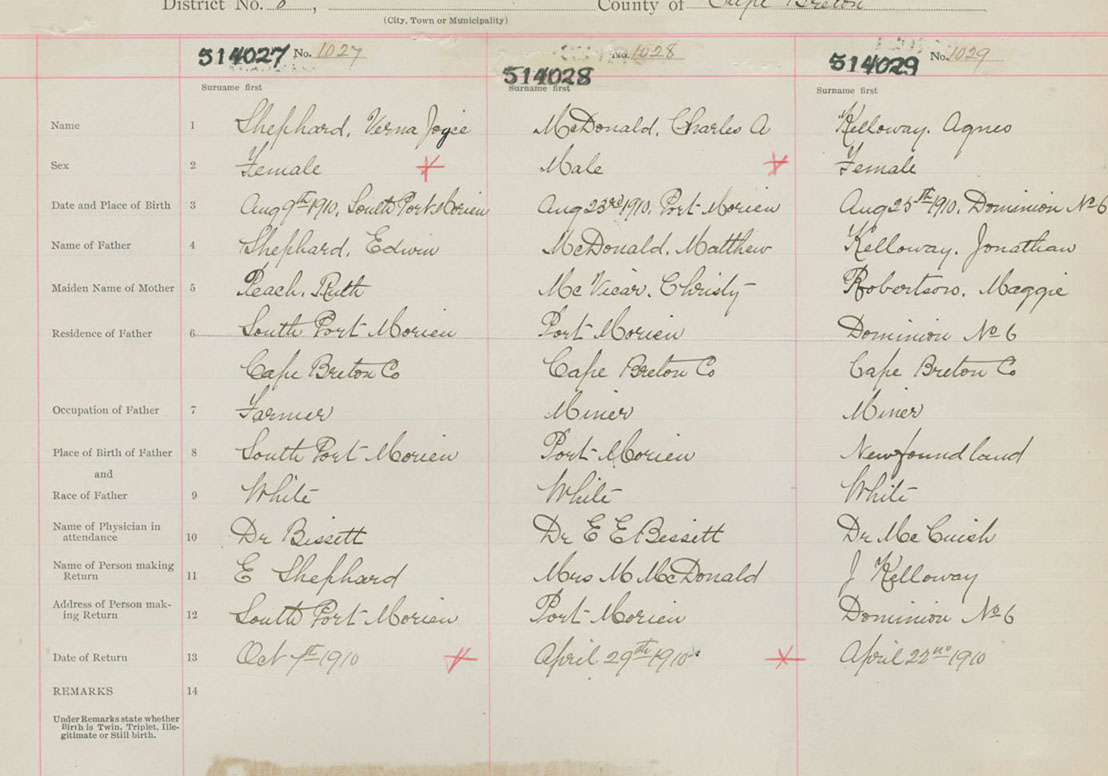 District No. 8, County of Cape Breton
(City, Town or Municipality)
514027 No. 1027 514028 No. 1028 514029 No. 1029
Surname first Surname first Surname first
Name 1 Shephard, Verna Joyce McDonald, Charles A Kelloway. Agnes
Sex 2 Female Male Female
Date and Place of Birth 3 Aug 9th 1910, South Port Morien Aug 23rd 1910, Port Morien Aug 25th 1910, Dominion No 6
Name of Father 4 Shephard, Edwin McDonald, Matthew Kelloway, Jonathan
Maiden Name of Mother 5 Peach, Ruth McVicar, Christy Robertson, Maggie
Residence of Father 6 South Port Morien Port Morien Dominion No 6
Cape Breton Co Cape Breton Co Cape Breton Co
Occupation of Father 7 Farmer Miner Miner
Place of Birth of Father 8 South Port Morien Port Morien Newfoundland
and
Race of Father 9 White White White
Name of Physician in
attendance 10 Dr Bissett Dr E E Bissett Dr McCuish
Name of Person making
Return 11 E Shephard Mrs M McDonald J Kelloway
Address of Person mak-
ing Return 12 South Port Morien Port Morien Dominion No 6
Date of Return 13 Oct 1910 April 29th 1910 April 22nd 1910
REMARKS 14
Under Remarks state whether
Birth is Twin, Triplet, Ille-
gitimate or Still birth.